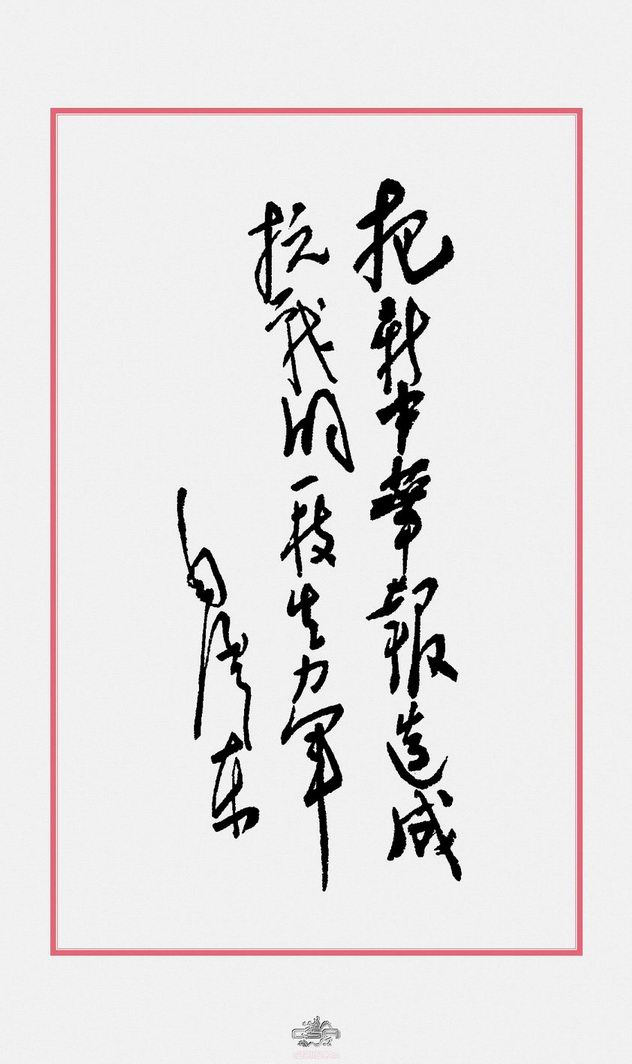 把新中华报造成
抗战的一枝生力军
毛泽东